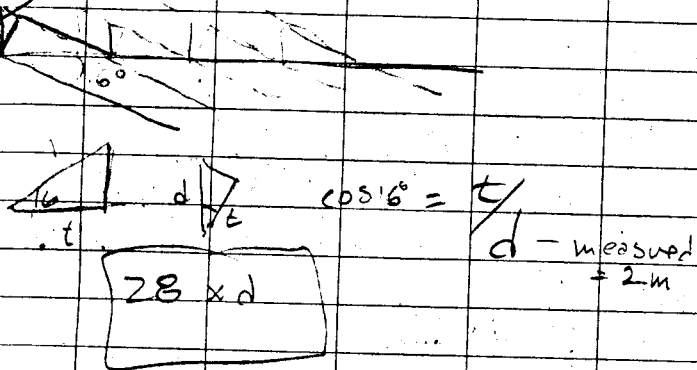 6°
16
t
d
t
cos 16° = t/d - measured
= 2m
28 x d